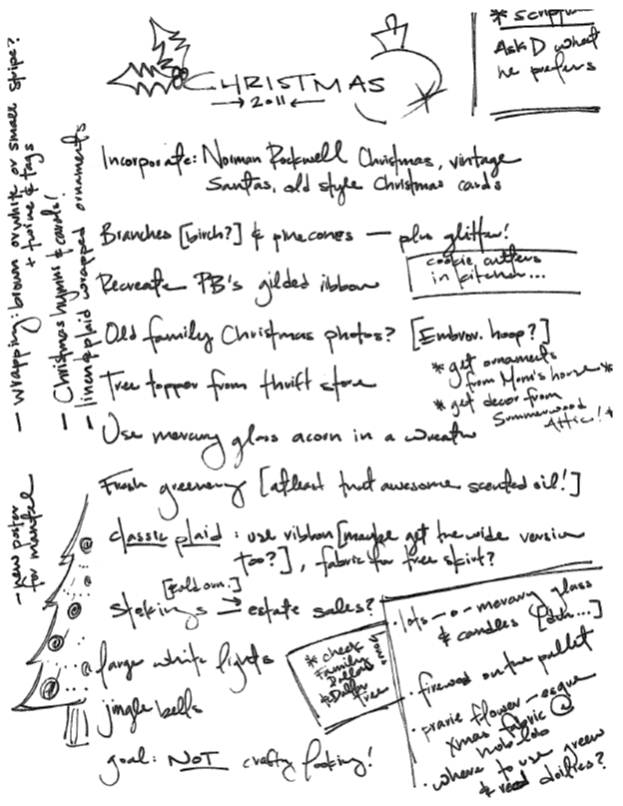 CHRISTMAS
→ 2011 ←
* scriptur
Ask D what
he prefers
Incorporate: Norman Rockwell Christmas, vintage
Santas, old style Christmas cards
Branches [birch?] & pinecones — plus glitter!
cookie cutters
in kitchen...
Recreate PB's gilded ribbon
Old family Christmas photos? [Embrov. hoop?]
* get ornaments
from Mom's house *
* get decor from
Summerwood
Attic! *
Tree topper from thrift store
Use mercury glass acorn in a wreath
Fresh greenery [atleast that awesome scented oil!]
classic plaid : use ribbon [maybe get the wide version
too?], fabric for tree skirt?
Stokings → estate sales?
large white lights
jingle bells
goal: NOT crafty looking!
* check
Family
Dollar
& Dollar
Tree
· lots-o-mercury glass
& candles [duh...]
· firewood on the pallet
· prarie flower-esque
xmas fabric @
hob lob
· where to use green
& red doilies?
— wrapping: brown or white or small stripe?
+ twine & tags
— Christmas hymns & carols!
— linen & plaid wrapped ornaments
— new poster
for mantel